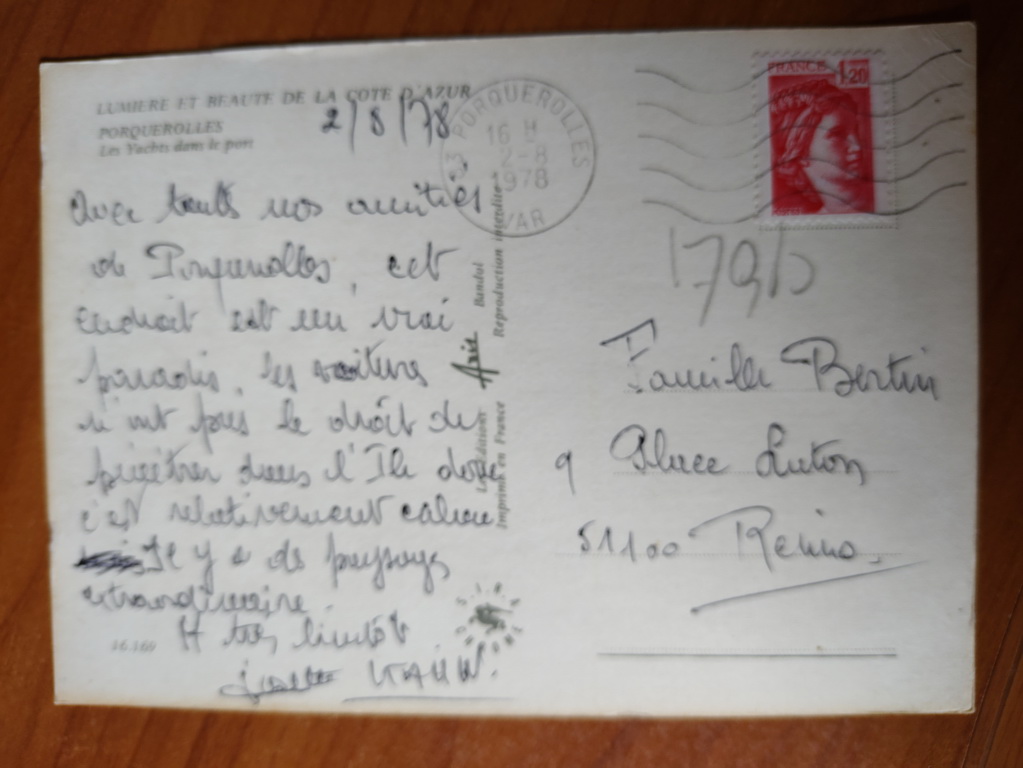 LUMIERE ET BEAUTE DE LA COTE D'AZUR
PORQUEROLLES
Les Yachts dans le port
2/8/78
Avec touts nos amitiés
de Porquerolles, cet
endroit est un vrai
paradis, les voitures
n'ont pas le droit de
pénétrer dans l'Ile donc
c'est relativement calme
Il y a de paysages
extraordinaire.
A très bientôt
16.169
Editions Bandol
Imprimé en France Reproduction interdite
83 PORQUEROLLES
16 H
2-8
1978
VAR
FRANCE 1,20
Famille Bertin
9 Place Luton
51100 Reims.